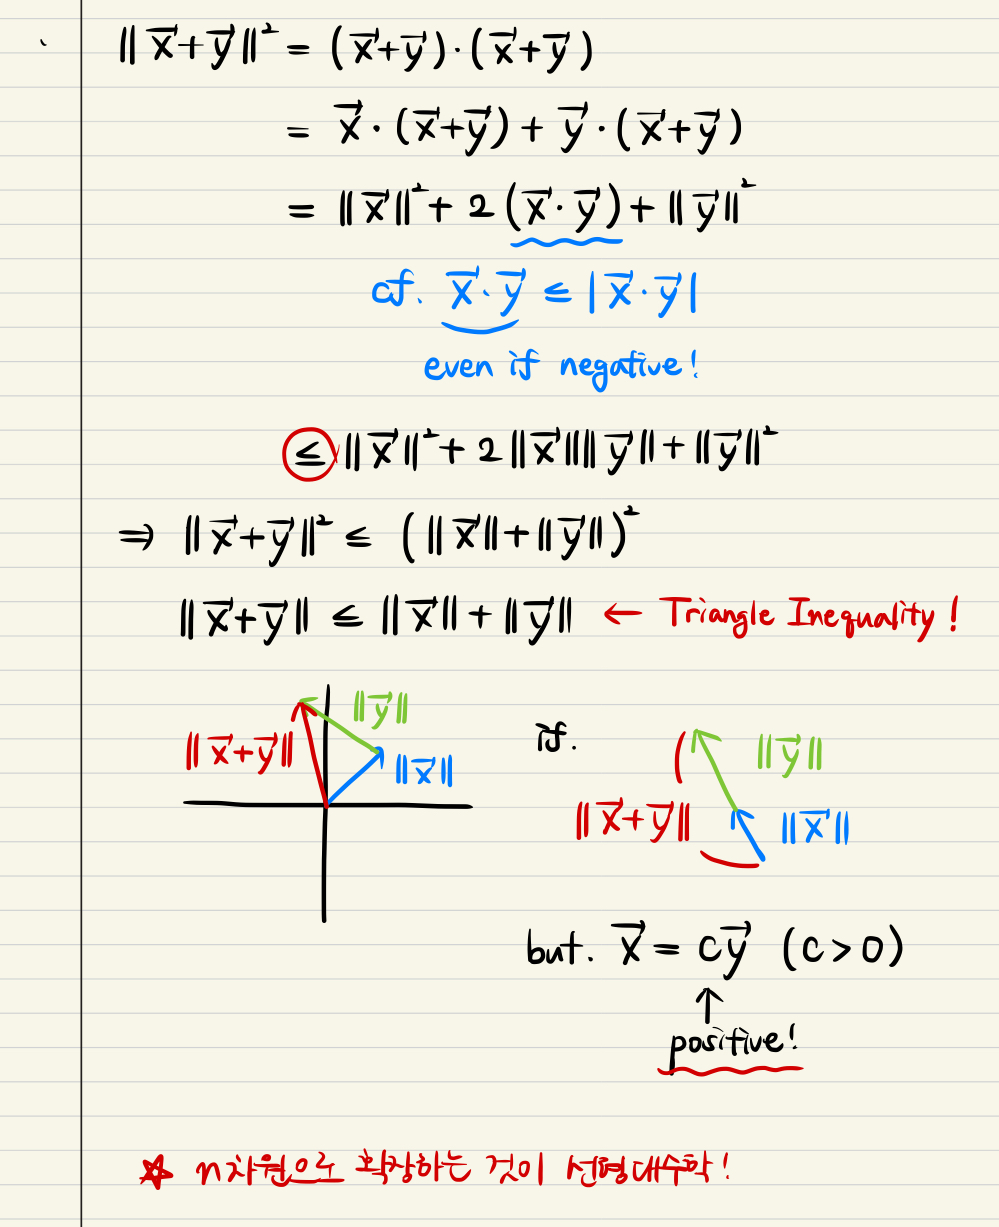 ‖x⃗+y⃗‖² = (x⃗+y⃗)·(x⃗+y⃗)
= x⃗·(x⃗+y⃗) + y⃗·(x⃗+y⃗)
= ‖x⃗‖² + 2(x⃗·y⃗) + ‖y⃗‖²
cf. x⃗·y⃗ ≤ |x⃗·y⃗|
even if negative!
≤ ‖x⃗‖² + 2‖x⃗‖‖y⃗‖ + ‖y⃗‖²
⇒ ‖x⃗+y⃗‖² ≤ (‖x⃗‖+‖y⃗‖)²
‖x⃗+y⃗‖ ≤ ‖x⃗‖ + ‖y⃗‖ ← Triangle Inequality!
‖y⃗‖
‖x⃗+y⃗‖
‖x⃗‖
if.
‖y⃗‖
‖x⃗+y⃗‖
‖x⃗‖
but. x⃗ = cy⃗ (c>0)
↑
positive!
☆ n차원으로 확장하는 것이 선형대수학!